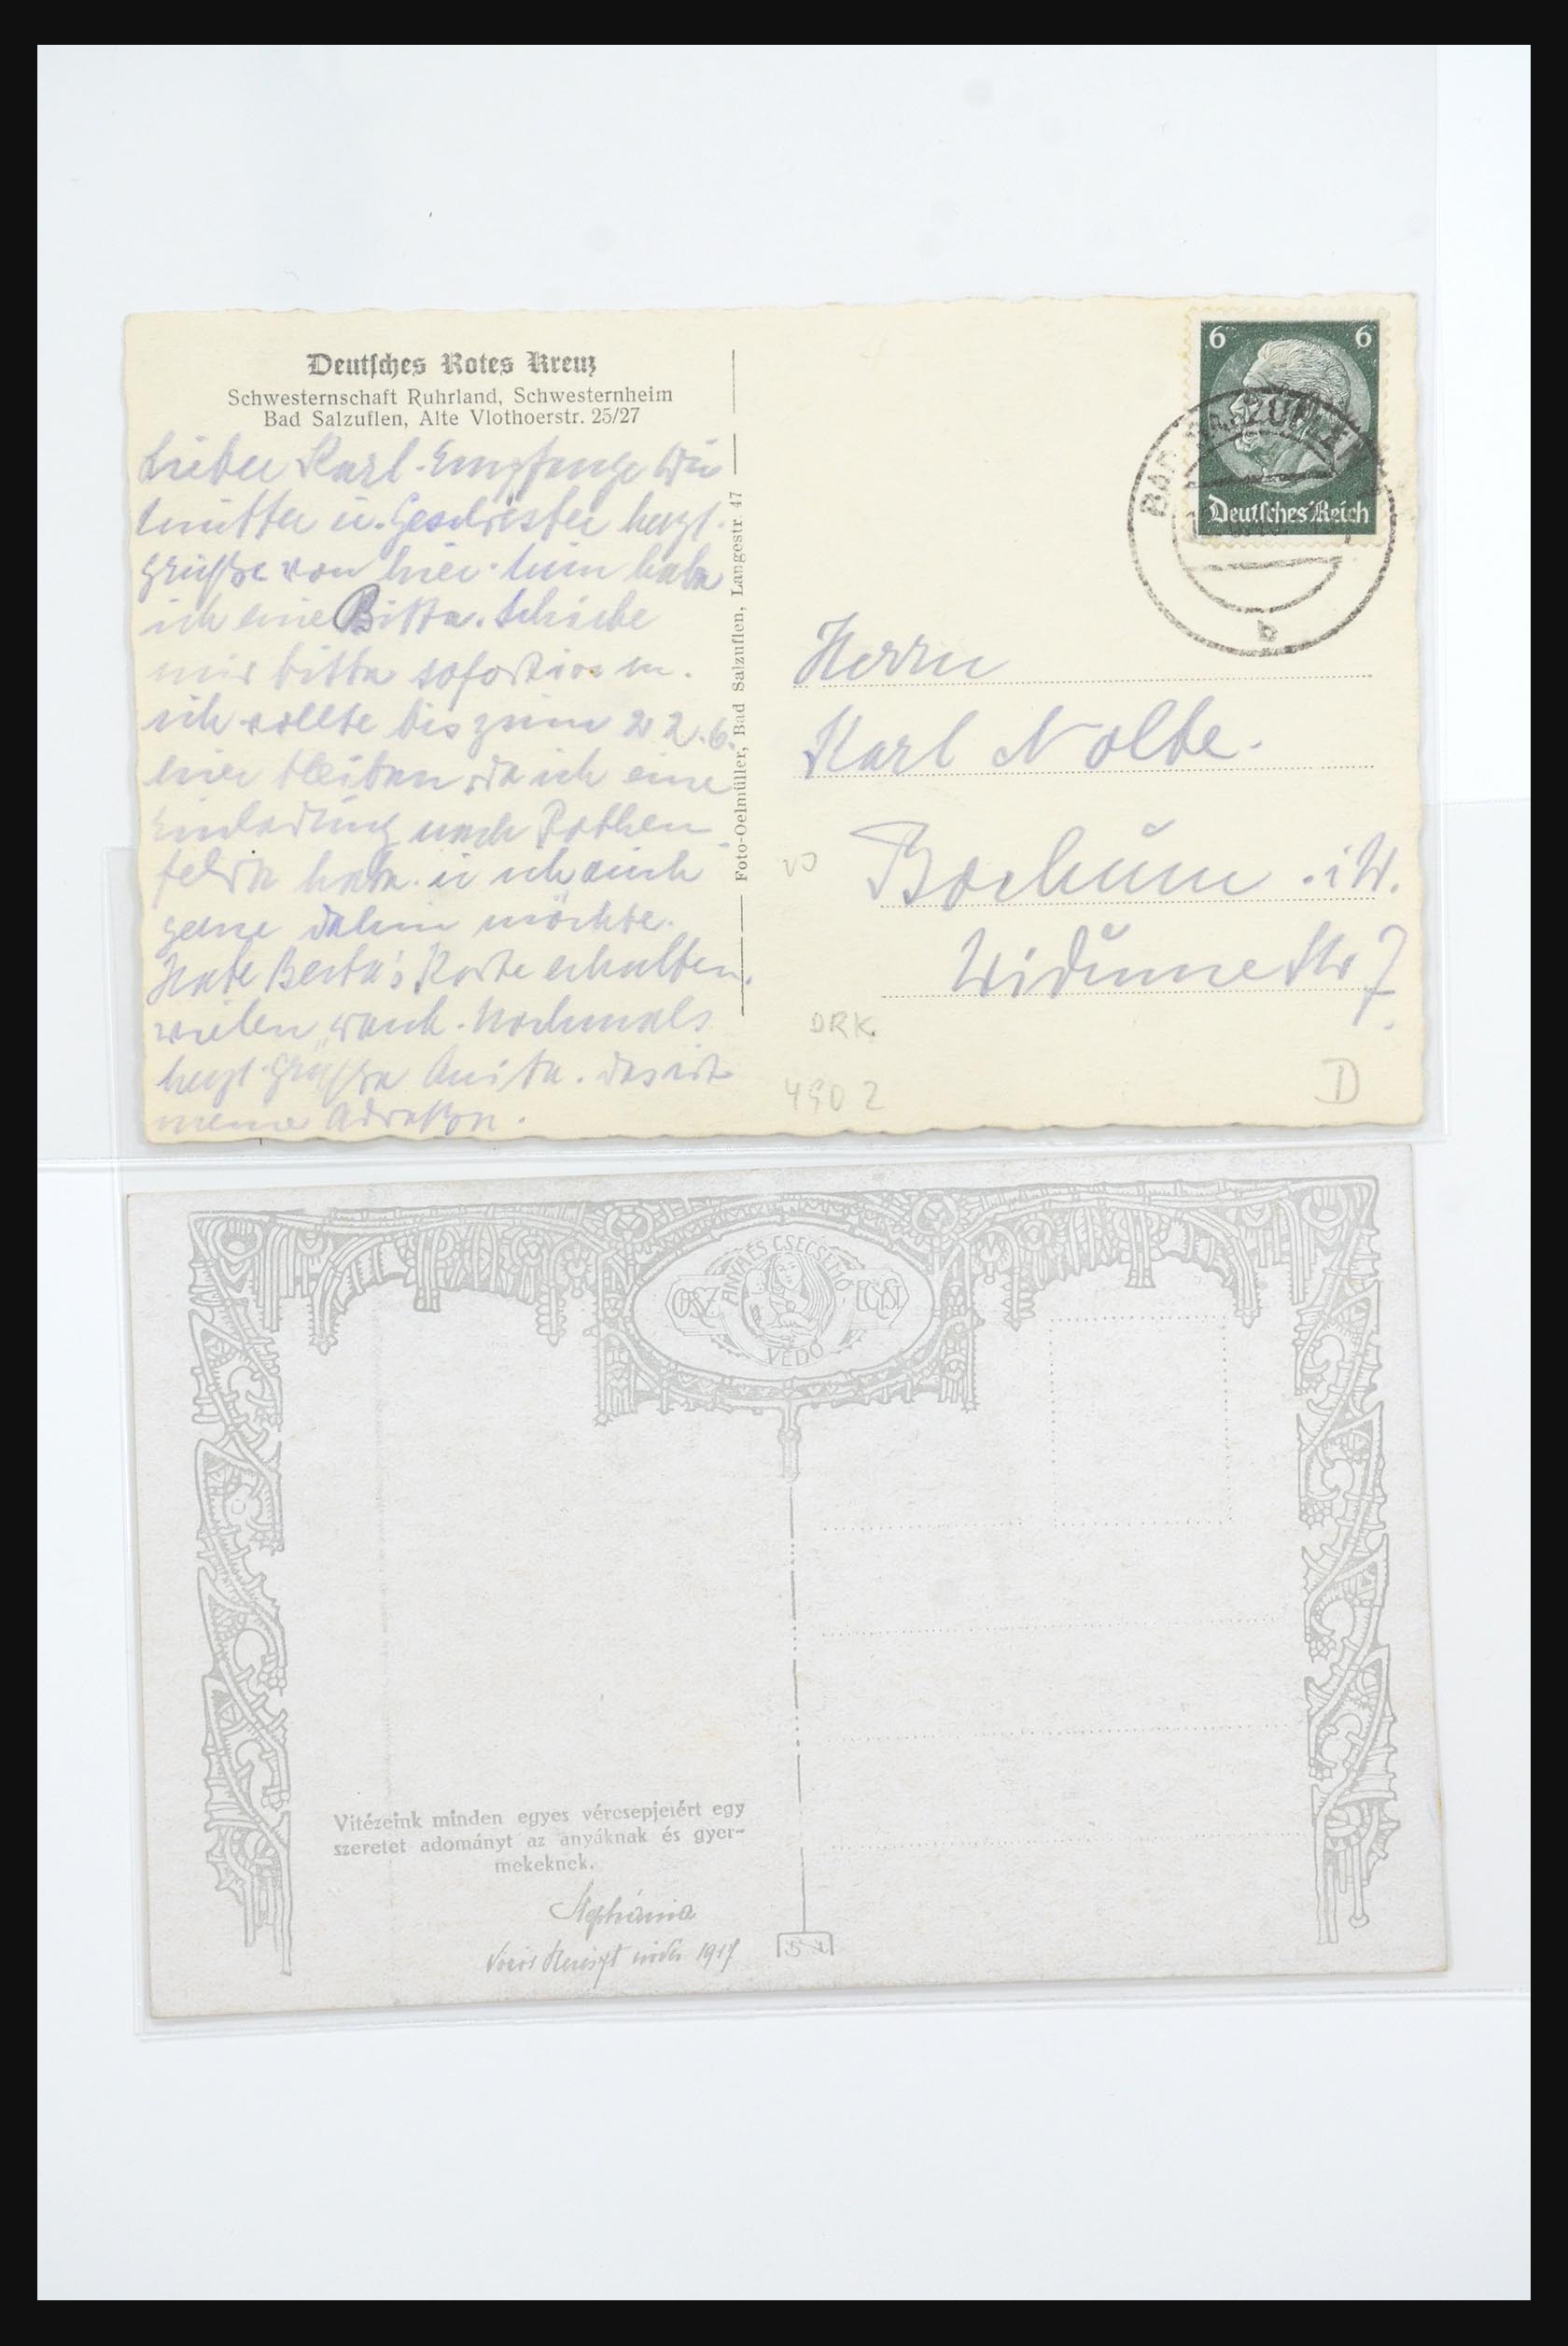 Deutsches Rotes Kreuz
Schwesternschaft Ruhrland, Schwesternheim
Bad Salzuflen, Alte Vlothoerstr. 25/27
Lieber Karl. Empfange Du
Mutter u. Geschwister herzl.
Grüße von hier. Nun habe
ich eine Bitte. Schicke
mir bitte sofort
ich wollte bis zum 22.6.
hier bleiben, da ich eine
Einladung nach Rothen
felde habe. u ich auch
gerne dahin möchte.
Habe Berta's Karte erhalten.
vielen Dank. Nochmals
herzl. Grüße Anita. Das ist
meine Adresse.
Foto-Oelmüller, Bad Salzuflen, Langestr. 47
6 6
Deutsches Reich
BAD SALZUFLEN
b
Herrn
Karl Nolte.
Bochum. i.W.
Widume Str 7.
DRK.
4902
D
ANYA ÉS CSECSEMŐ
VÉDŐ
Vitézeink minden egyes vércsepjeiért egy
szeretet adományt az anyáknak és gyer-
mekeknek.
Stephánia
Vörös Kereszt 1917